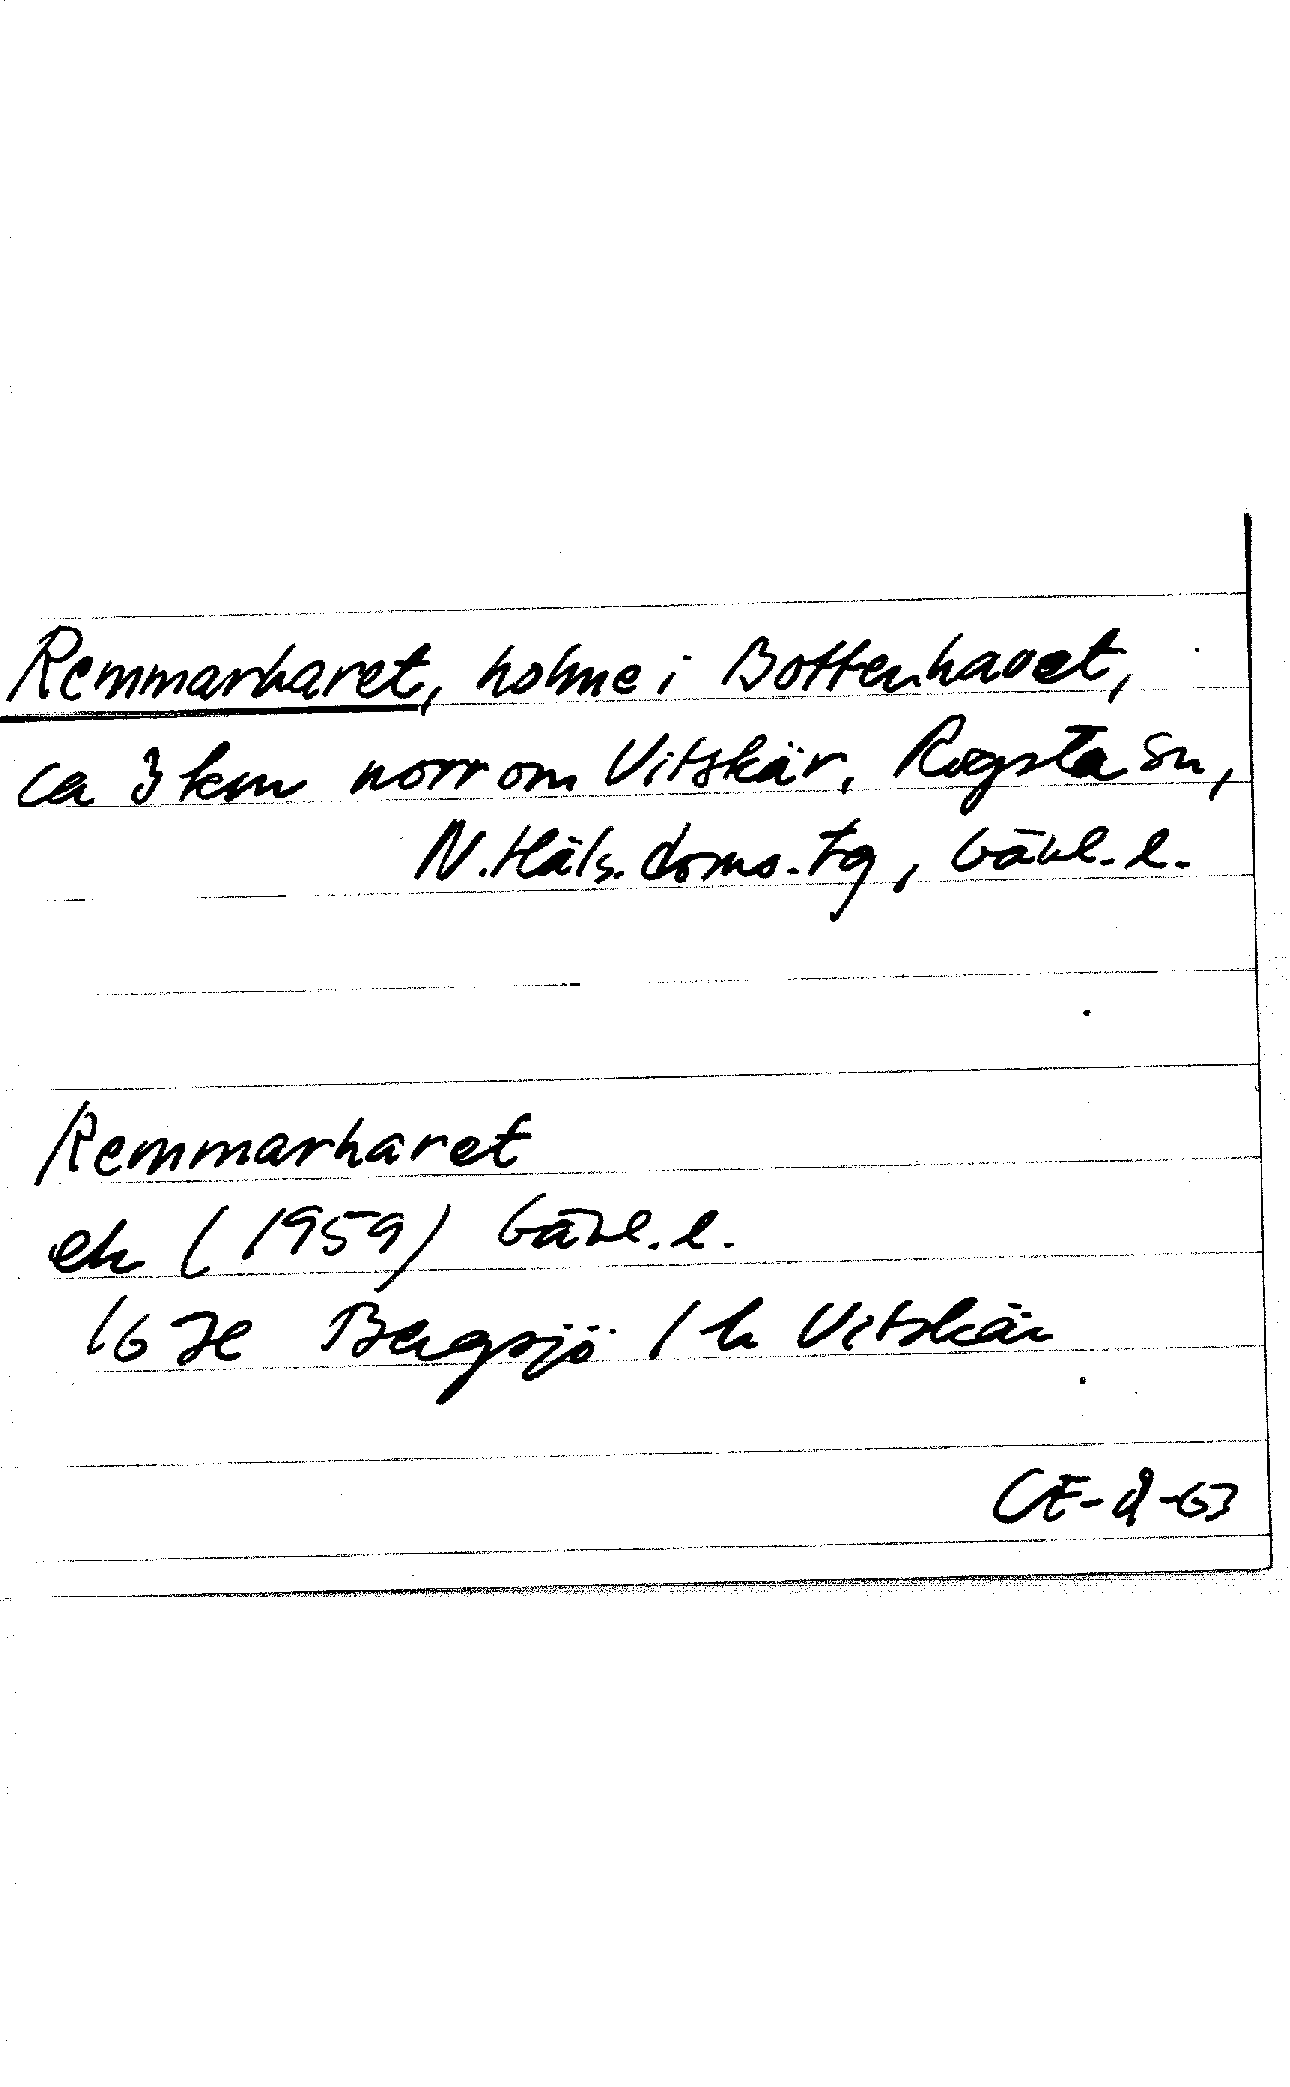 Remmarharet, holme i Bottenhavet,
ca 3 km norr om Vitskär, Rogsta sn,
N. Häls. doms. tg, Gävl. l.
Remmarharet
ek (1959) Gävl. l.
16 H Bergsjö / h Vitskär
CE-9-63